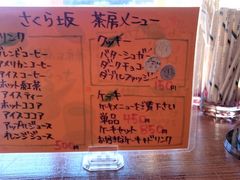 さくら坂 茶房メニュー
ドリンク
ブレンドコーヒー
アメリカンコーヒー
アイスコーヒー
ホット紅茶
アイスティー
ホットココア
アイスココア
アップルジュース
オレンジジュース
500円
クッキー
バターシュガー
ダークチョコ
ダブルファッジ
150円
ケーキ
ケーキメニューをご覧下さい
単品 450円
ケーキセット 850円
お好きなケーキとドリンク